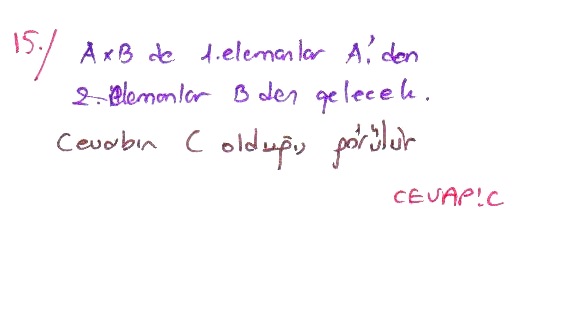 15./ AxB de 1. elemanlar A'den
2. Elemanlar B den gelecek.
Cevabın C olduğu görülür
CEVAP: C